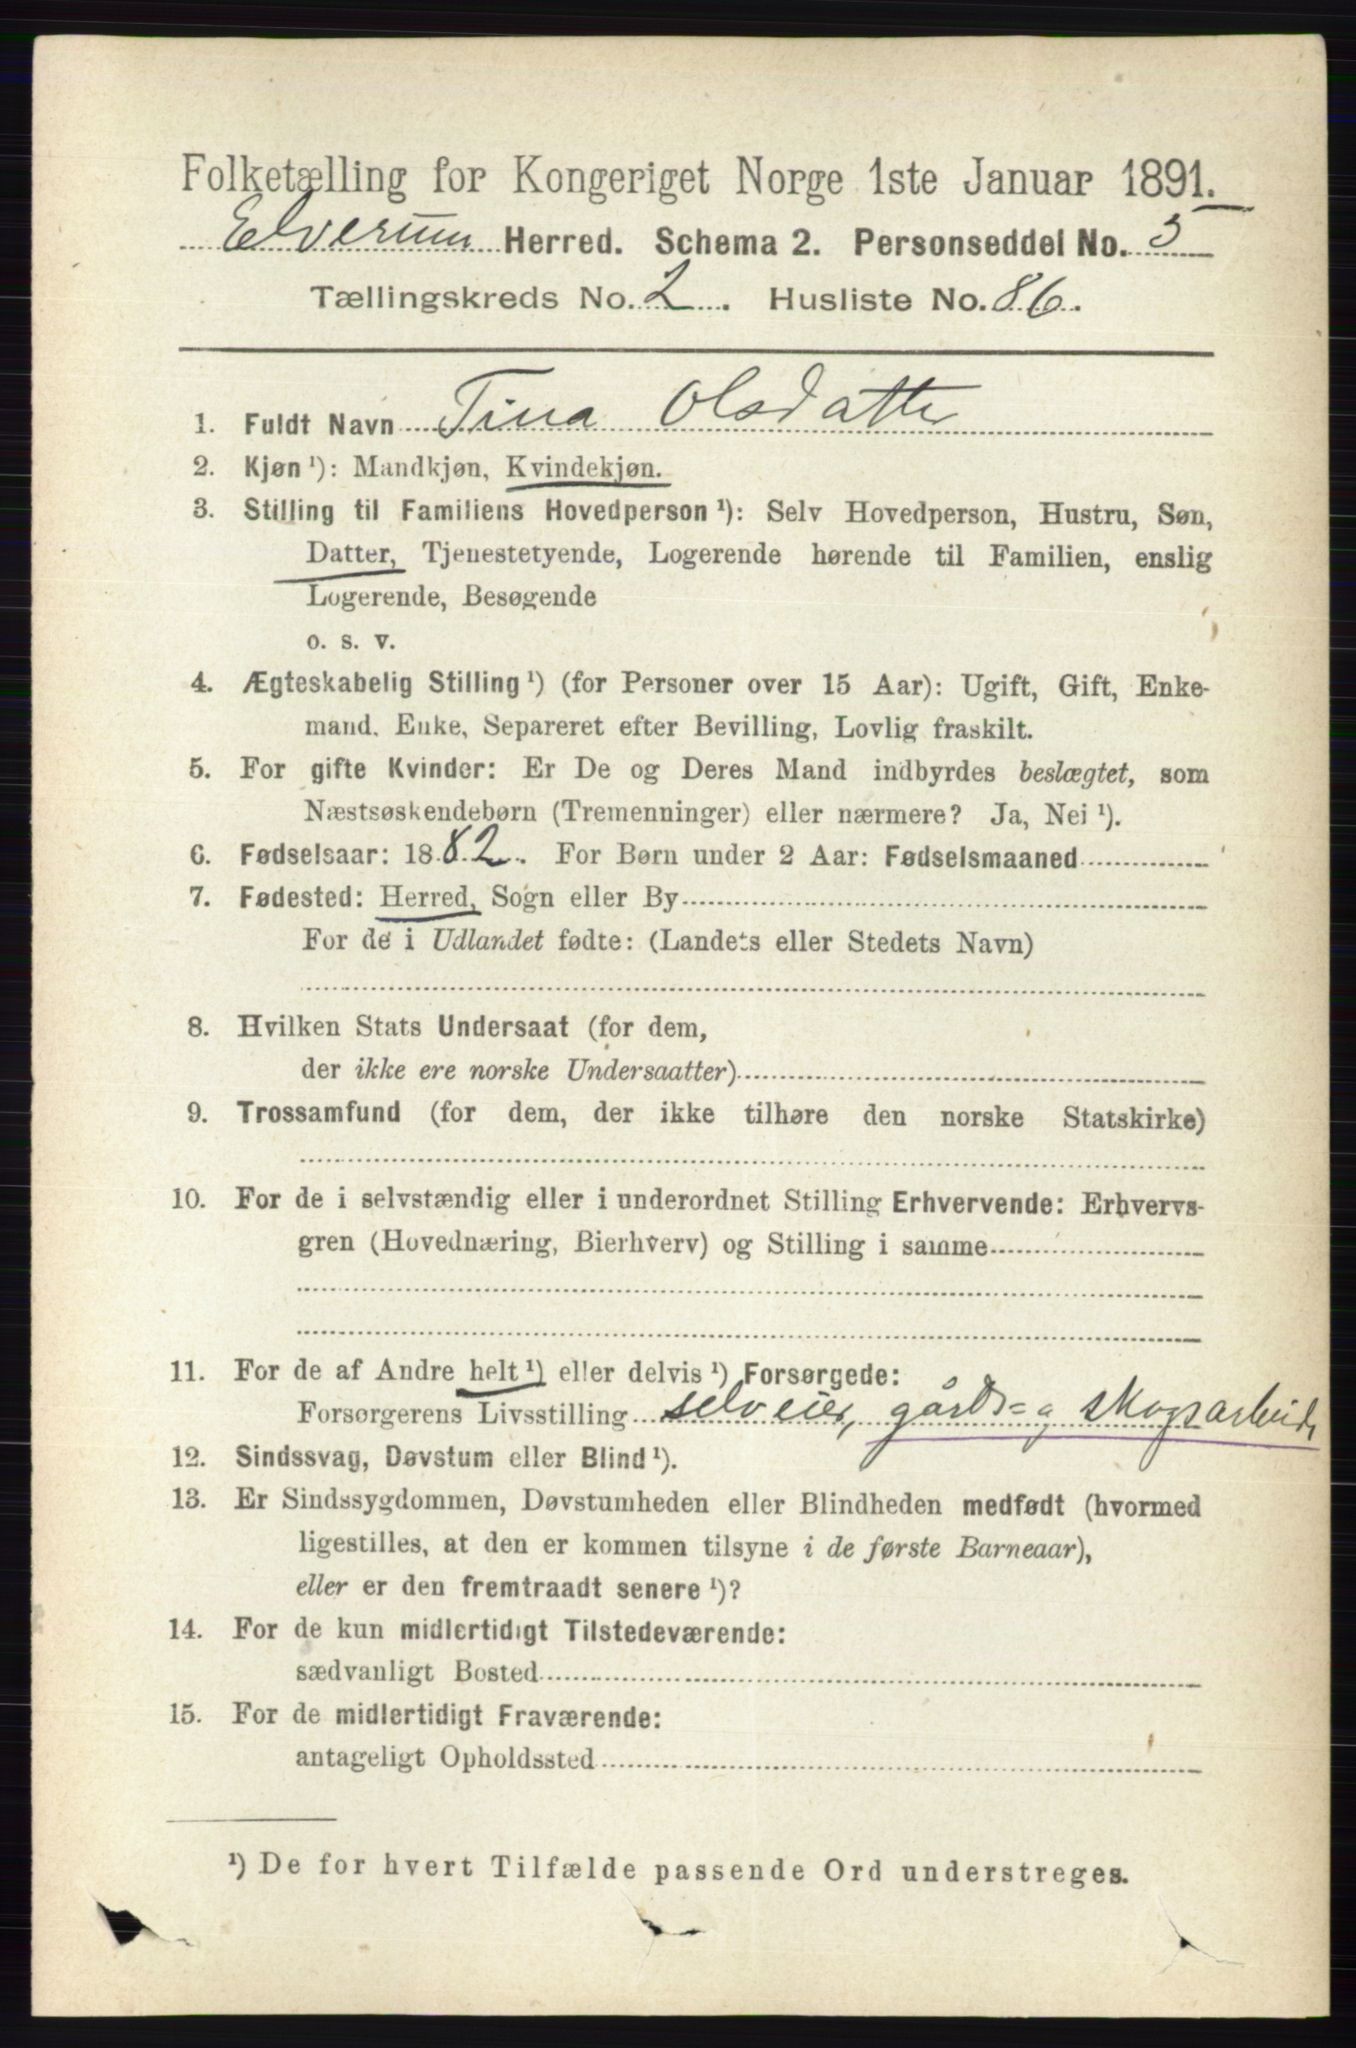 Folketælling for Kongeriget Norge 1ste Januar 1891.
Elverum Herred. Schema 2. Personseddel No. 5
Tællingskreds No. 2. Husliste No. 86.
1. Fuldt Navn Tina Olsdatter
2. Kjøn ¹): Mandkjøn, Kvindekjøn.
3. Stilling til Familiens Hovedperson ¹): Selv Hovedperson, Hustru, Søn,
Datter, Tjenestetyende, Logerende hørende til Familien, enslig
Logerende, Besøgende
o. s. v.
4. Ægteskabelig Stilling ¹) (for Personer over 15 Aar): Ugift, Gift, Enke-
mand, Enke, Separeret efter Bevilling, Lovlig fraskilt.
5. For gifte Kvinder: Er De og Deres Mand indbyrdes beslægtet, som
Næstsøskendebørn (Tremenninger) eller nærmere? Ja, Nei ¹).
6. Fødselsaar: 1882. For Børn under 2 Aar: Fødselsmaaned
7. Fødested: Herred, Sogn eller By
For de i Udlandet fødte: (Landets eller Stedets Navn)
8. Hvilken Stats Undersaat (for dem,
der ikke ere norske Undersaatter)
9. Trossamfund (for dem, der ikke tilhøre den norske Statskirke)
10. For de i selvstændig eller i underordnet Stilling Erhvervende: Erhvervs-
gren (Hovednæring, Bierhverv) og Stilling i samme
11. For de af Andre helt ¹) eller delvis ¹) Forsørgede:
Forsørgerens Livsstilling selveier, gårds- og skogsarbeid,
12. Sindssvag, Døvstum eller Blind ¹).
13. Er Sindssygdommen, Døvstumheden eller Blindheden medfødt (hvormed
ligestilles, at den er kommen tilsyne i de første Barneaar),
eller er den fremtraadt senere ¹)?
14. For de kun midlertidigt Tilstedeværende:
sædvanligt Bosted
15. For de midlertidigt Fraværende:
antageligt Opholdssted
¹) De for hvert Tilfælde passende Ord understreges.